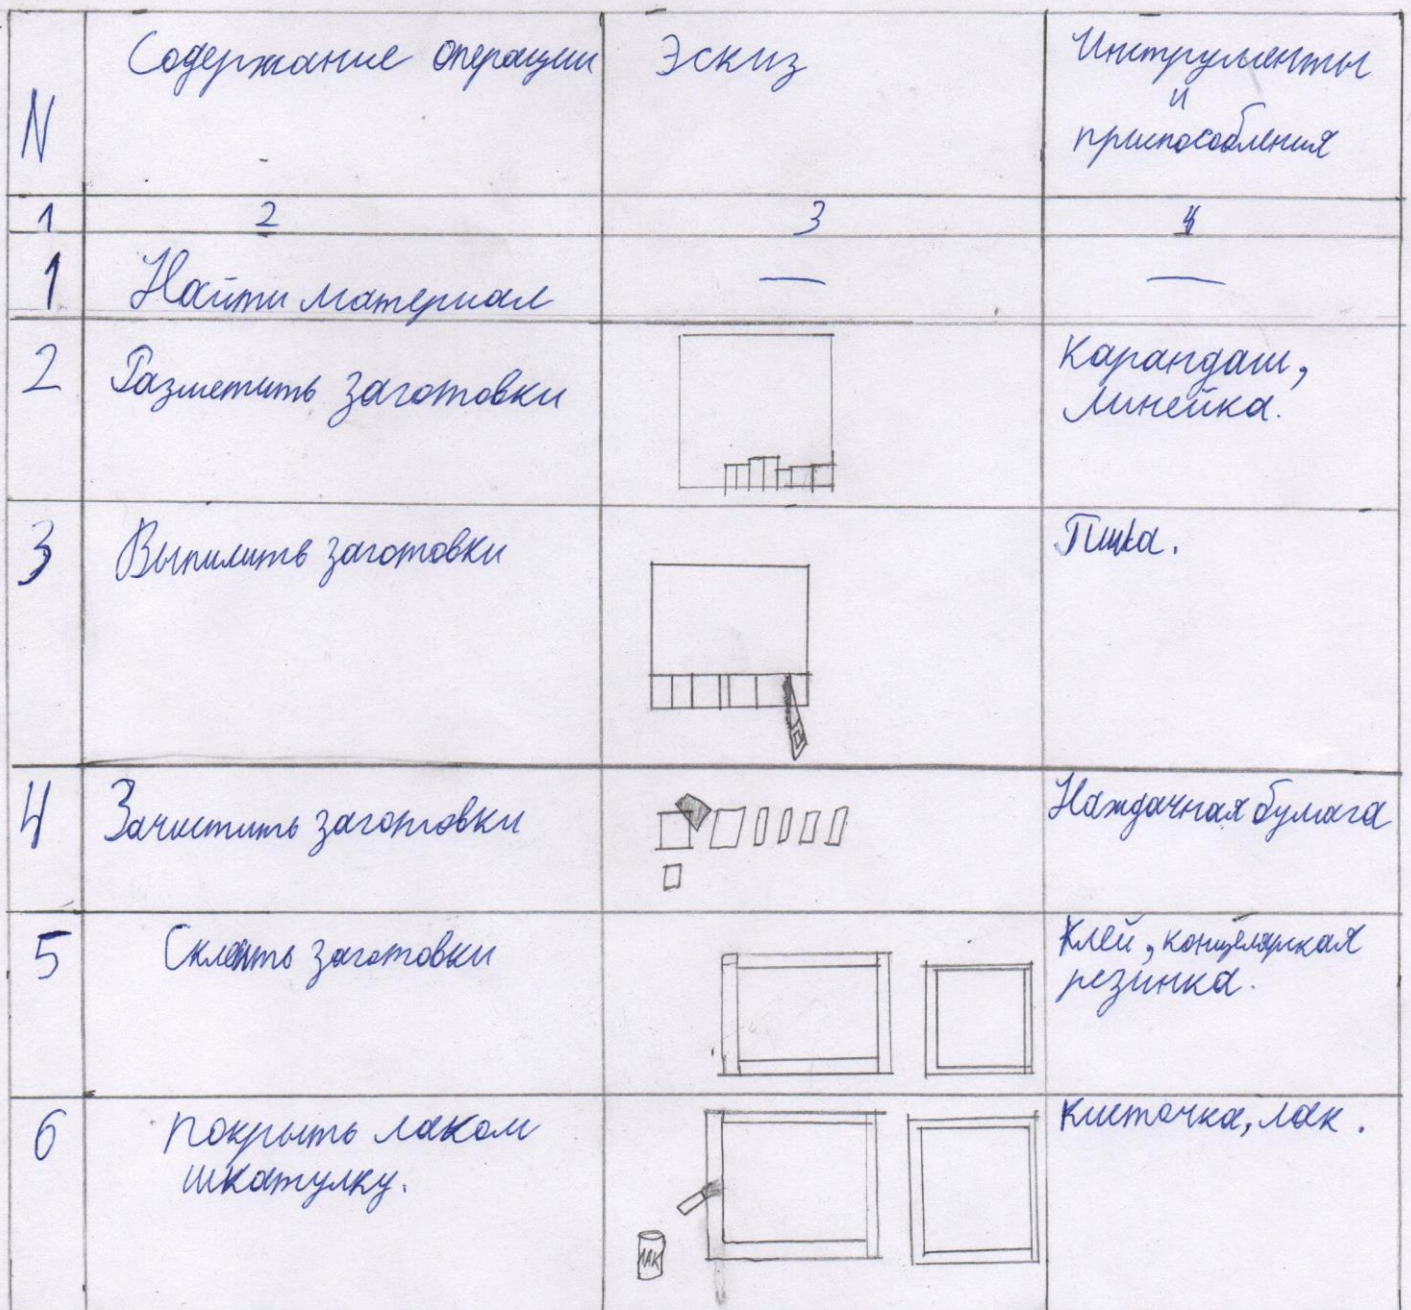 N
Содержание операции
Эскиз
Инструменты
и
приспособления
1
2
3
4
1
Найти материал
—
—
2
Разметить заготовки
Карандаш,
линейка.
3
Выпилить заготовки
Пилка.
4
Зачистить заготовки
Наждачная бумага
5
Склеить заготовки
Клей, канцелярская
резинка.
6
Покрыть лаком
шкатулку.
ЛАК
Кисточка, лак.